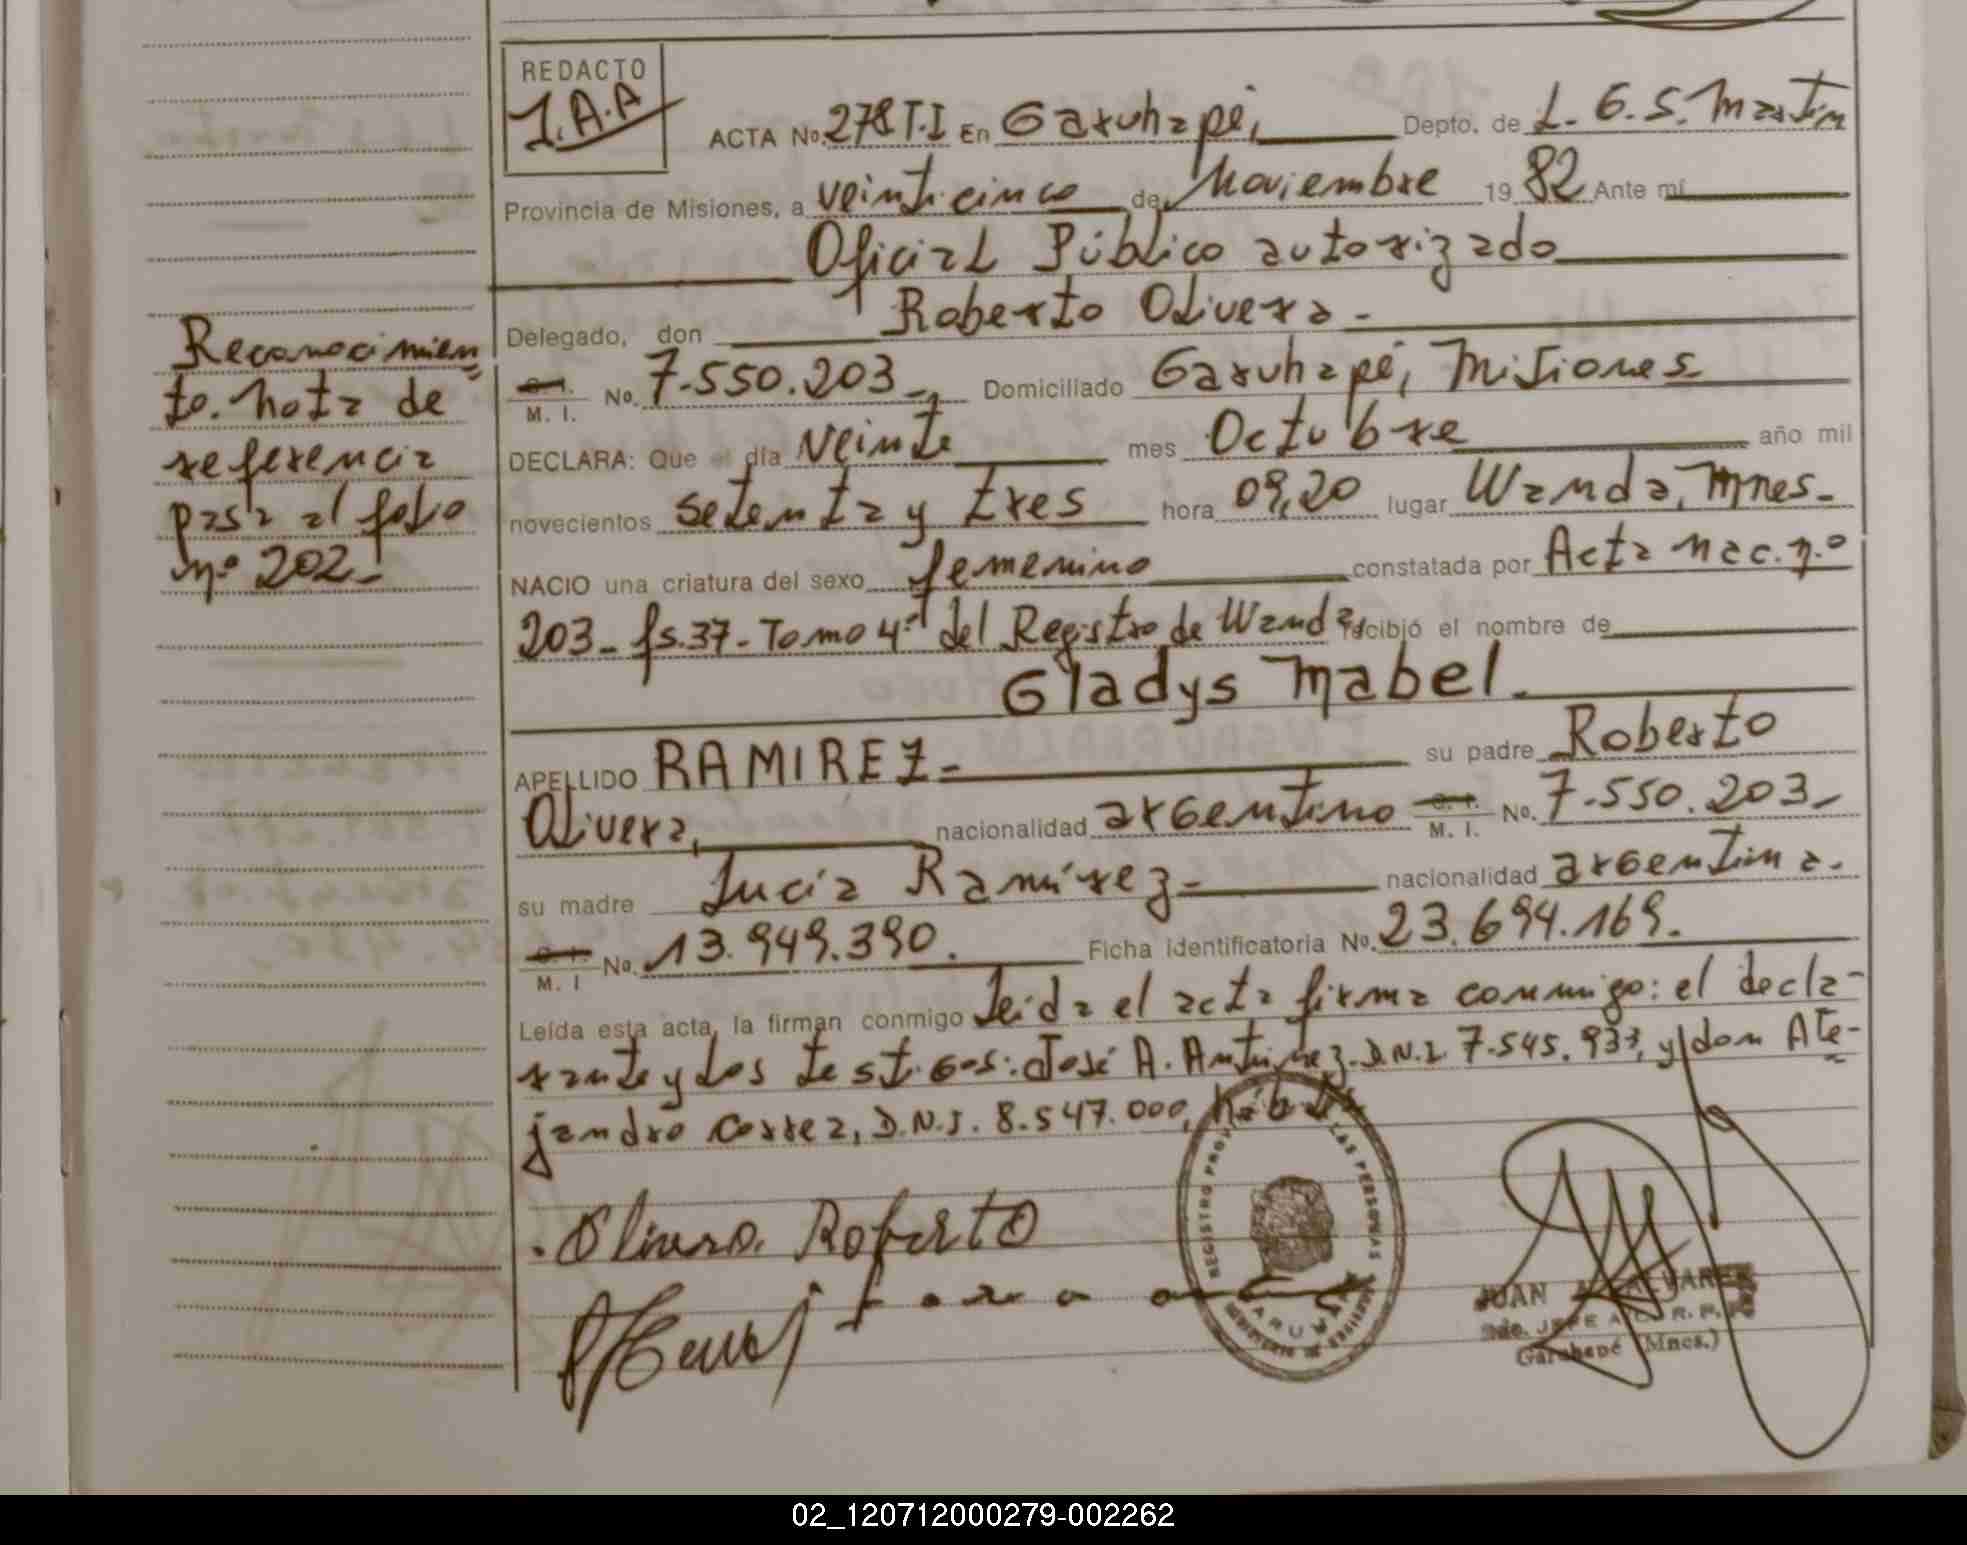 REDACTO
J.A.A
ACTA No. 278 T.I En Garuhapé, Depto. de L. G. S. Martin
Provincia de Misiones, a veinticinco de Noviembre 19 82 Ante mí
Oficial Público autorizado
Delegado, don Roberto Olivera-
C. I. M. I. No. 7.550.203_, Domiciliado Garuhapé, Misiones
DECLARA: Que el día veinte mes Octubre año mil
novecientos setenta y tres hora 09,20 lugar Wanda, Mnes-
NACIO una criatura del sexo femenino constatada por Acta nac. n.º
203_ fs.37- Tomo 4º del Registro de Wanda, recibió el nombre de
Gladys Mabel.
APELLIDO RAMIREZ- su padre Roberto
Olivera, nacionalidad argentino C. I. M. I. No. 7.550.203_
su madre Lucia Ramírez- nacionalidad argentina.
C. I. M. I No. 13.949.390. Ficha identificatoria No. 23.694.169.
Leída esta acta, la firman conmigo Leida el acta firma conmigo: el decla-
rante y los testigos: José A. Antunez. D.N.I. 7.545.933, y don Ale-
jandro Correa, D.N.I. 8.547.000,
Reconocimien
to. nota de
referencia
pasa al folio
nº 202_
Olivera Roberto
REGISTRO PROV. LAS PERSONAS
MINISTERIO DE
JUAN ALVAREZ
2do. JEFE R. P.
Garuhapé (Mnes.)
02_120712000279-002262